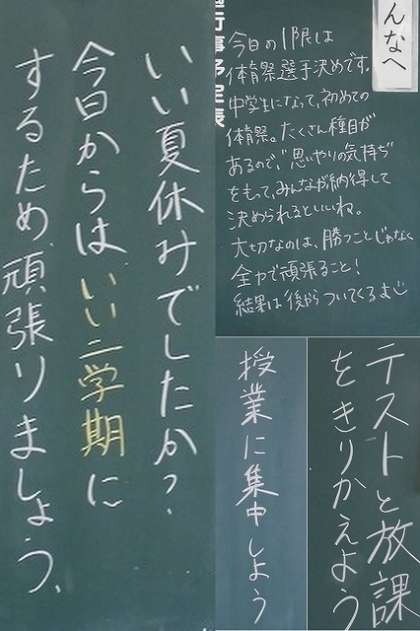 いい夏休みでしたか?
今日からはいい二学期に
するため頑張りましょう、
んなへ
行事予定表
今日の1限は
体育祭選手決めです。
中学生になって、初めての
体育祭。たくさん種目が
あるので、"思いやりの気持ち"
をもって、みんなが納得して
決められるといいね。
大切なのは、勝つことじゃなく
全力で頑張ること!
結果は後からついてくるよ
授業に集中しよう
テストと放課
をきりかえよう